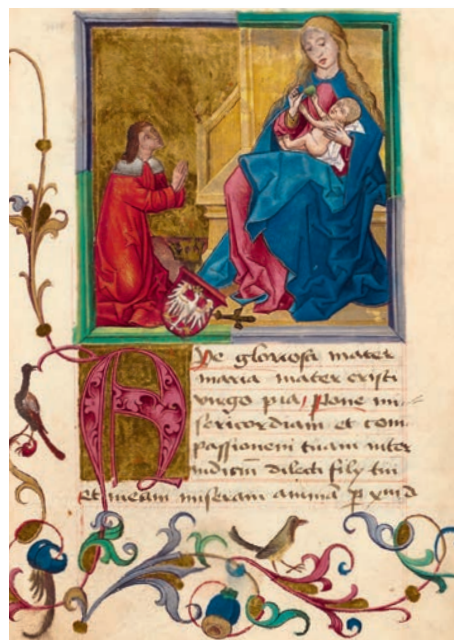 Ave gloriosa mater
maria mater cristi
virgo pia, Pone mi-
sericordiam et com
passionem tuam inter
iudiciū dilecti filij tui
et meam miseram animā